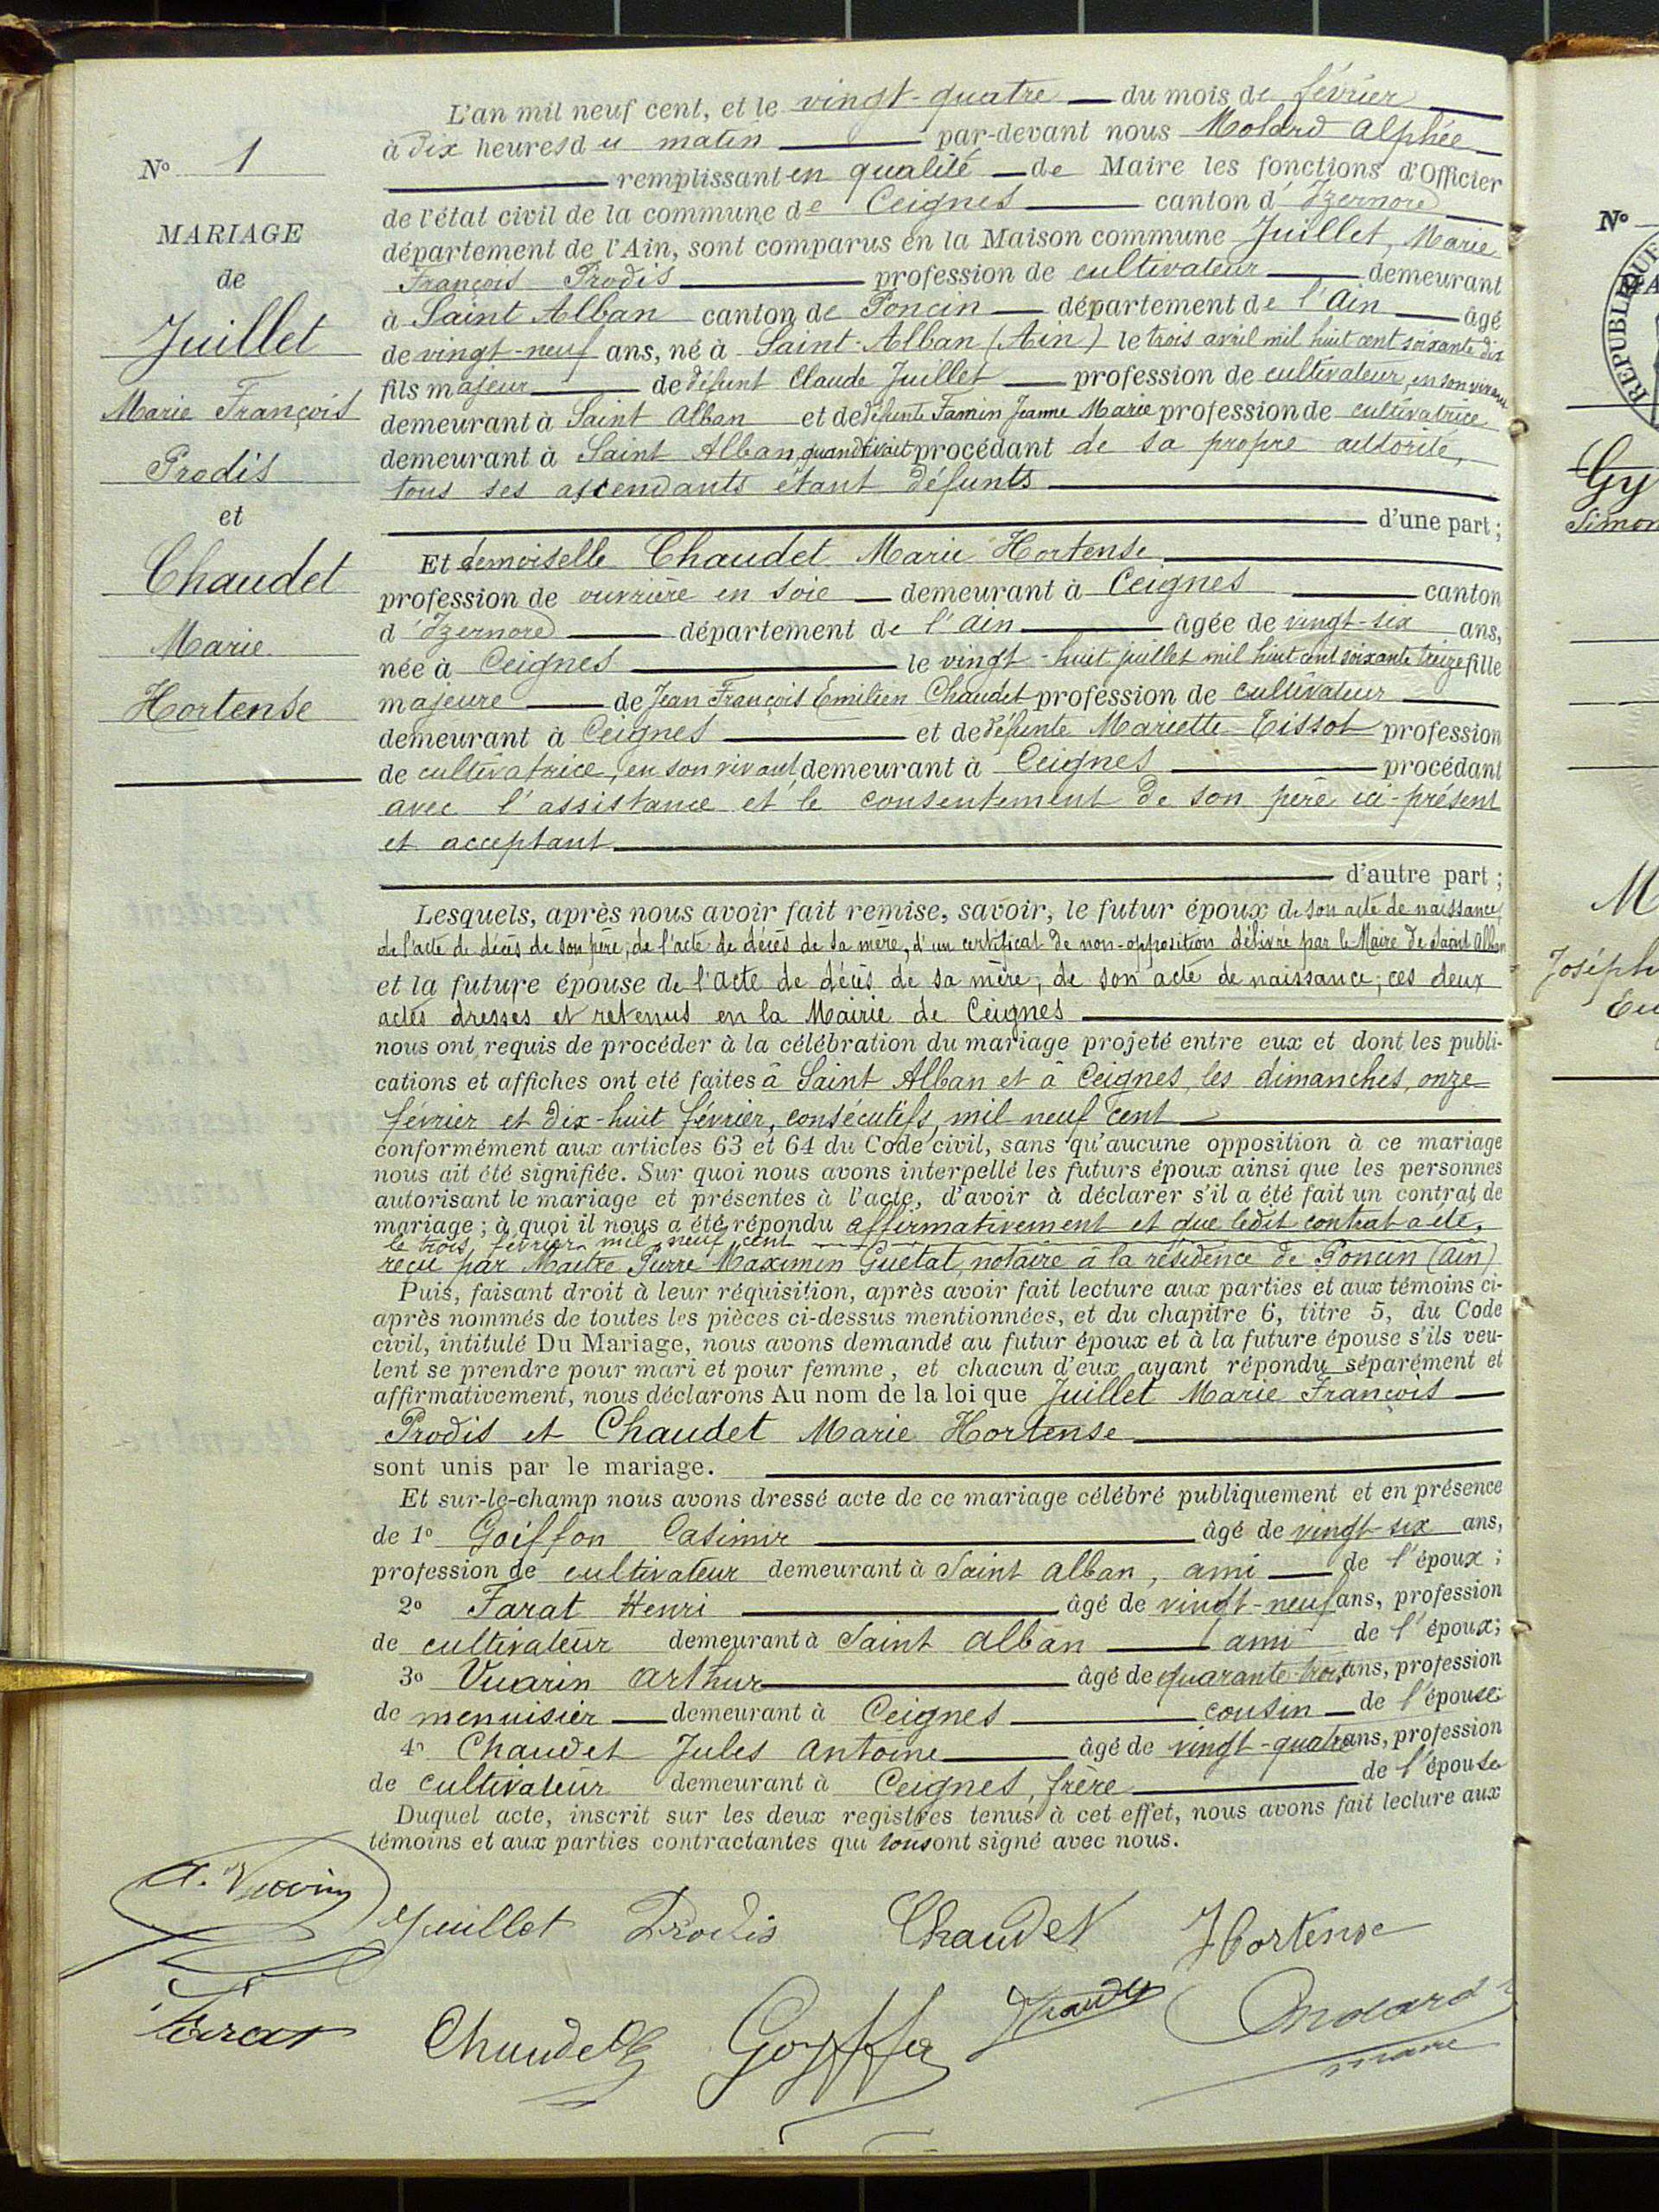 N° 1
MARIAGE
de
Juillet
Marie François
Prodis
et
Chaudet
Marie
Hortense
L'an mil neuf cent, et le vingt-quatre du mois de février
à dix heures du matin par-devant nous Molard Alphée
remplissant en qualité de Maire les fonctions d'Officier
de l'état civil de la commune de Ceignes canton d'Izernore
département de l'Ain, sont comparus en la Maison commune Juillet, Marie
François Prodis profession de cultivateur demeurant
à Saint Alban canton de Poncin département de l'Ain âgé
de vingt-neuf ans, né à Saint-Alban (Ain) le trois avril mil huit cent soixante dix
fils majeur de défunt Claude Juillet profession de cultivateur, en son vivant
demeurant à Saint Alban et de défunte Tamin Jeanne Marie profession de cultivatrice
demeurant à Saint Alban, quand vivait procédant de sa propre autorité,
tous ses ascendants étant défunts
d'une part ;
Et demoiselle Chaudet Marie Hortense
profession de ouvrière en soie demeurant à Ceignes canton
d'Izernore département de l'Ain âgée de vingt-six ans,
née à Ceignes le vingt-huit juillet mil huit cent soixante treize fille
majeure de Jean François Emilien Chaudet profession de cultivateur
demeurant à Ceignes et de défunte Mariette Tissot profession
de cultivatrice, en son vivant, demeurant à Ceignes procédant
avec l'assistance et le consentement de son père ici-présent
et acceptant
d'autre part ;
Lesquels, après nous avoir fait remise, savoir, le futur époux de son acte de naissance,
de l'acte de décès de son père, de l'acte de décès de sa mère, d'un certificat de non-opposition délivré par le Maire de Saint Alban
et la future épouse de l'acte de décès de sa mère, de son acte de naissance ; ces deux
actes dressés et retenus en la Mairie de Ceignes
nous ont requis de procéder à la célébration du mariage projeté entre eux et dont les publi-
cations et affiches ont été faites à Saint Alban et à Ceignes, les dimanches, onze
février et dix-huit février, consécutifs, mil neuf cent
conformément aux articles 63 et 64 du Code civil, sans qu'aucune opposition à ce mariage
nous ait été signifiée. Sur quoi nous avons interpellé les futurs époux ainsi que les personnes
autorisant le mariage et présentes à l'acte, d'avoir à déclarer s'il a été fait un contrat de
mariage ; à quoi il nous a été répondu affirmativement et que ledit contrat a été,
le trois février mil neuf cent
reçu par Maître Pierre Maximin Guétat, notaire à la résidence de Poncin (Ain)
Puis, faisant droit à leur réquisition, après avoir fait lecture aux parties et aux témoins ci-
après nommés de toutes les pièces ci-dessus mentionnées, et du chapitre 6, titre 5, du Code
civil, intitulé Du Mariage, nous avons demandé au futur époux et à la future épouse s'ils veu-
lent se prendre pour mari et pour femme, et chacun d'eux ayant répondu séparément et
affirmativement, nous déclarons Au nom de la loi que Juillet Marie François
Prodis et Chaudet Marie Hortense
sont unis par le mariage.
Et sur-le-champ nous avons dressé acte de ce mariage célébré publiquement et en présence
de 1° Goiffon Casimir âgé de vingt-six ans,
profession de cultivateur demeurant à Saint Alban, ami de l'époux ;
2° Farat Henri âgé de vingt-neuf ans, profession
de cultivateur demeurant à Saint Alban ami de l'époux ;
3° Vuarin Arthur âgé de quarante-trois ans, profession
de menuisier demeurant à Ceignes cousin de l'épouse
4° Chaudet Jules Antoine âgé de vingt-quatre ans, profession
de cultivateur demeurant à Ceignes, frère de l'épouse
Duquel acte, inscrit sur les deux registres tenus à cet effet, nous avons fait lecture aux
témoins et aux parties contractantes qui tous ont signé avec nous.
A. Vuarin
Juillet Prodis Chaudet Hortense
Farat Chaudet Molard
maire
N°
Gy
Simon
M
Joseph